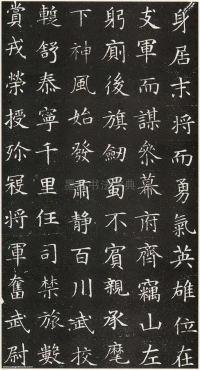 身居末將而勇氣英雄位在
支軍而謀叅幕府齊竊山左
躬廁後旗劒蜀不賓親承麾
下神風始發肅静百川武校
蹔舒泰寧千里任司禁旅數
賞戎榮授殄寇將軍奮武尉